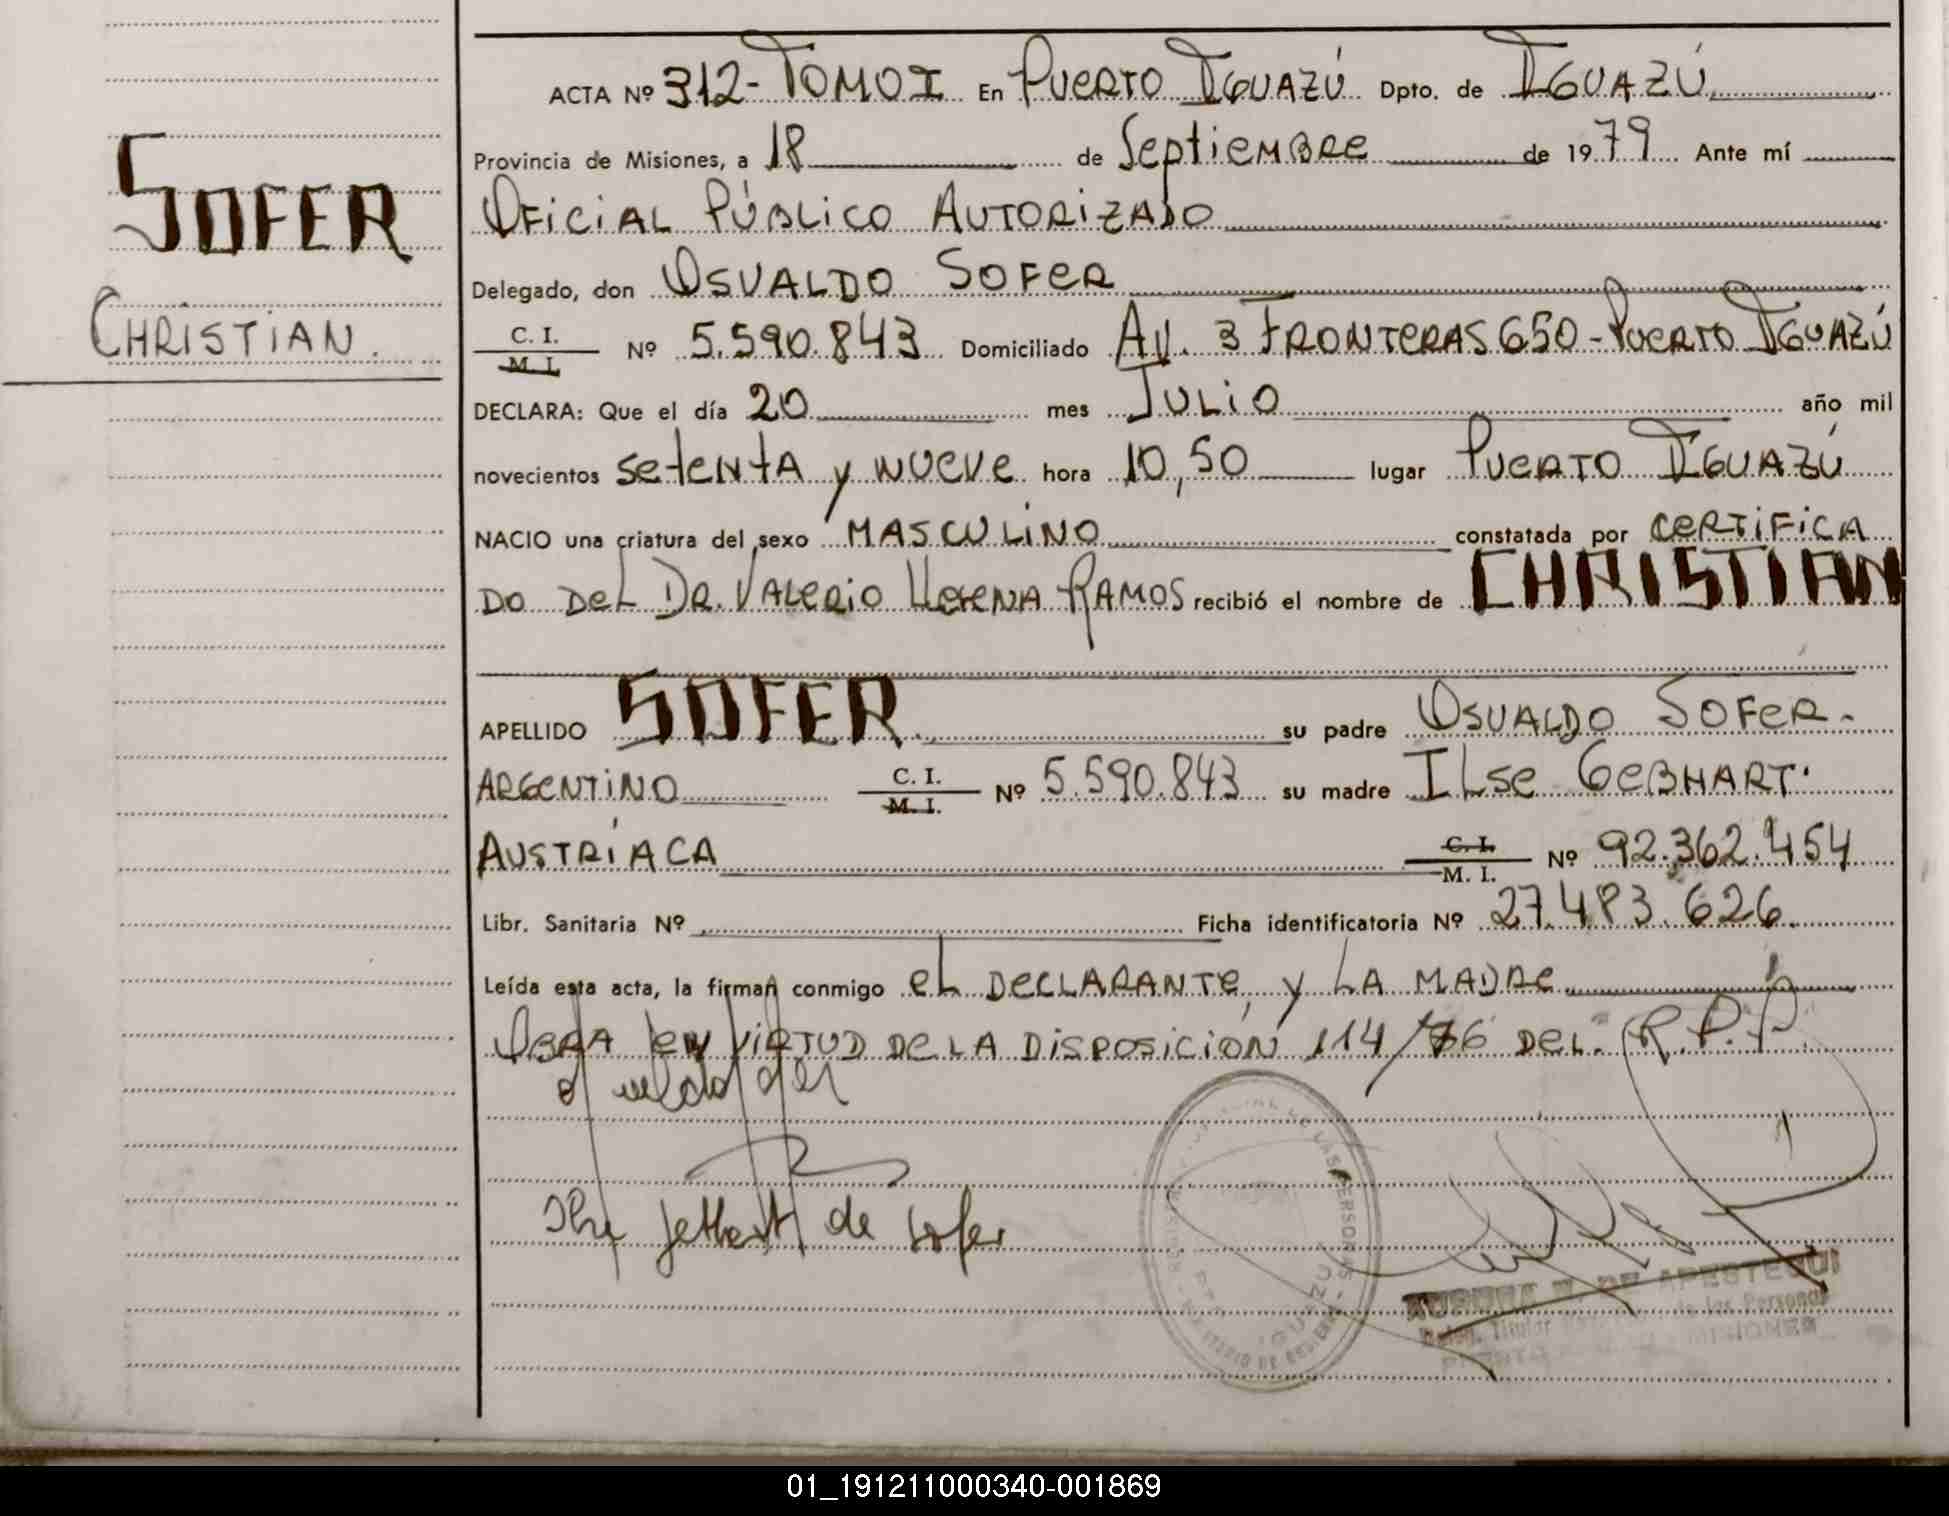 SOFER
CHRISTIAN.
ACTA Nº 312- TOMO I En PUERTO IGUAZÚ Dpto. de IGUAZÚ
Provincia de Misiones, a 18 de Septiembre de 1979 Ante mí
OFICIAL PÚBLICO AUTORIZADO
Delegado, don OSVALDO SOFER
C. I. / M. I. Nº 5.590.843 Domiciliado AV. 3 FRONTERAS 650 - PUERTO IGUAZÚ
DECLARA: Que el día 20 mes JULIO año mil
novecientos setenta y nueve hora 10,50 lugar PUERTO IGUAZÚ
NACIO una criatura del sexo MASCULINO constatada por CERTIFICA
DO DEL DR. VALERIO RAMOS recibió el nombre de CHRISTIAN
APELLIDO SOFER. su padre OSVALDO SOFER.
ARGENTINO C. I. / M. I. Nº 5.590.843 su madre ILSE GEBHART.
AUSTRÍACA C. I. / M. I. Nº 92.362.454
Libr. Sanitaria Nº Ficha identificatoria Nº 27.483.626.
Leída esta acta, la firman conmigo EL DECLARANTE, y LA MADRE
OBRA EN VIRTUD DE LA DISPOSICIÓN 114/76 DEL R.P.P.
de Sofer
DE APESTEGUI
Titular de las Personas
MISIONES
01_191211000340-001869